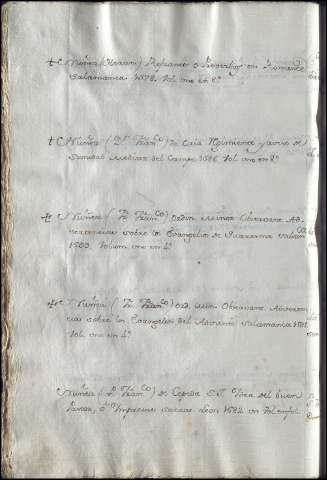 + C Nuñez (Hernan) Refranes o Proverbios en Romance
Salamanca 1578. Vol. uno en 8º
+ C Nuñez (Dn. Franco) de Coria Regimiento y aviso de
Sanidad Medina del Campo 1586 Vol. uno en 8º
Nuñez (Fr. Franco) Ordin Minor Observane Ad-
sobre los Evangelios de Quaresma Salam ca
Volum. uno en 4º
Nuñez (Fr. Franco) Ord. Min Observane Adverten-
cias sobre los Evangelios del Adviento Salamanca
Vol. uno en 4º
Nuñez (P. Franco) de Cepeda S.J. Idea del Buen
Pastor, Leon 1682 un Vol. en fol